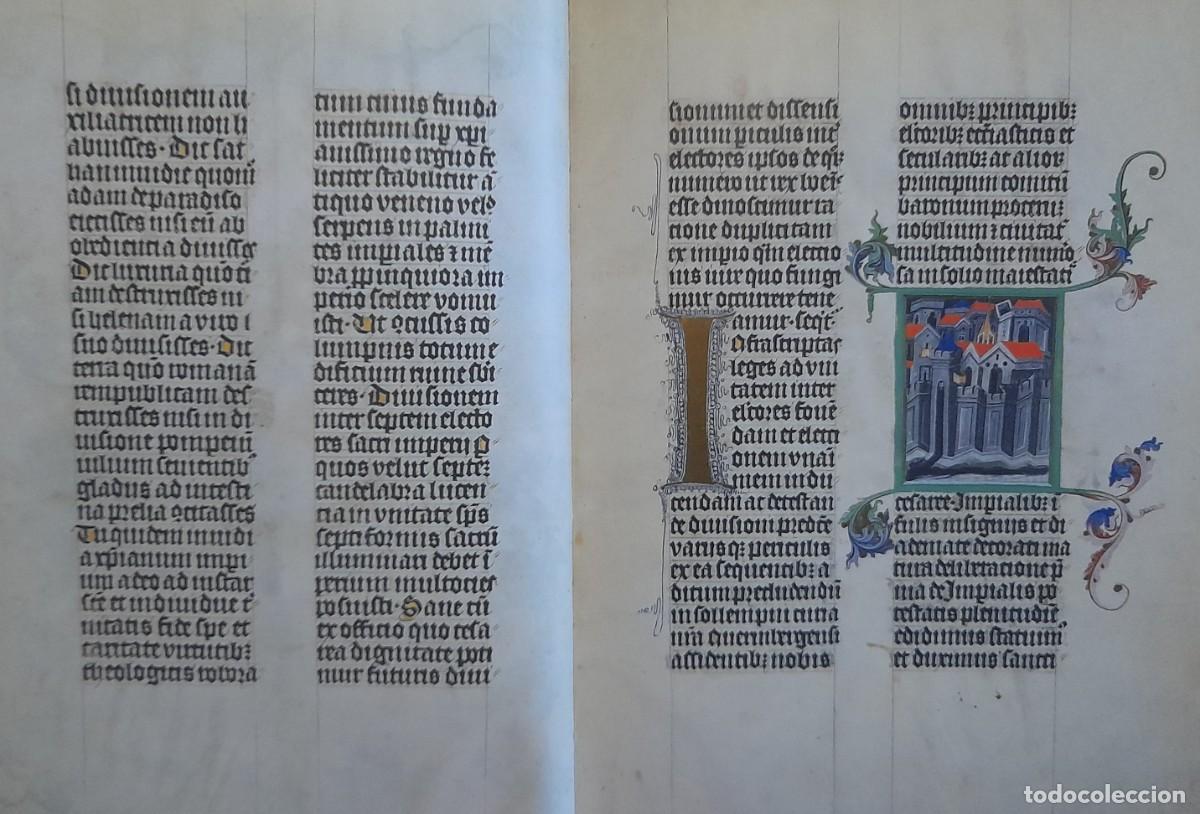 si diuisionem au
xiliatricem non ha
buisses. Dic sat
han inuidie quoiñ
adam de paradiso
eiecisses nisi eũ ab
obediencia diuisisses
Dic luxuria quo tro
iam destruxisses ni
si helenam a viro
suo diuisisses. Dic
terra quõ romanã
rempublicam des
truxisses nisi in di
uisione pompeiũ
iulium seuientibꝰ
gladiis ad intesti
na prelia
Tu quidem inuidi
a xp̃ianum imperi
um a deo ad instar
sc̃e et indiuidue t̃
nitatis fide spe et
caritate virtutibꝫ
theologicis robora
tum cuius funda
mentum suꝑ xpi
anissimo regno fe
liciter stabilitur ã
tiquo veneno velđ
serpens in palmi
tes imperiales ⁊ mẽ
bra ꝓpinquiora im
pio scelere vomu
isti. Vt ꝯcussis co
lumpnis totum e
dificium ruine sbi
ceres. Diuisionem
inter septem electo
res sacri imperij ꝑ
quos velut septeꝫ
candelabra lucen
cia in vnitate sp̃s
septiformis sacrũ
illuminari debet ĩ
perium multocies
posuisti. Sane cũ
ex officio quo cesa
rea dignitate poti
mur futuris diui
sionum et dissensi
onum ꝑiculis int̃
electores ipsos de qͣꝝ
numero ut rex boẽi
esse dinoscimur ra
cione duplici tam
ex imꝑio qͣm electio
nis iure quo fungi
mur occurrere tene
amur. Seqr̃
Infrascriptas
leges ad vni
tatem inter
elc̃tores fouẽ
dam et electi
onem vnaĩ
mem indu
cendam ac detestan
de diuisioni predc̃e
variisqꝫ periculis
ex ea sequentibꝫ a
ditum precludendũ
in sollempni curia
nr̃a Nuermbergensi
assidentibꝫ nobis
omnibꝫ principibꝫ
elc̃oribꝫ ecc̃iasticis et
secularibꝫ ac alioꝝ
principum comitũ
baronum proceruꝫ
nobilium ⁊ ciuitat̃
multitudine nume̾o
sa in solio maiestatꝭ
cesaree. Imꝑialibꝫ ĩ
fulis insigniis et di
ademate decorati ma
tura deliberatione p̃
uia de Imꝑialis po
testatis plenitudĩe
edidimus statuimꝰ
et duximus sanct
todocoleccion